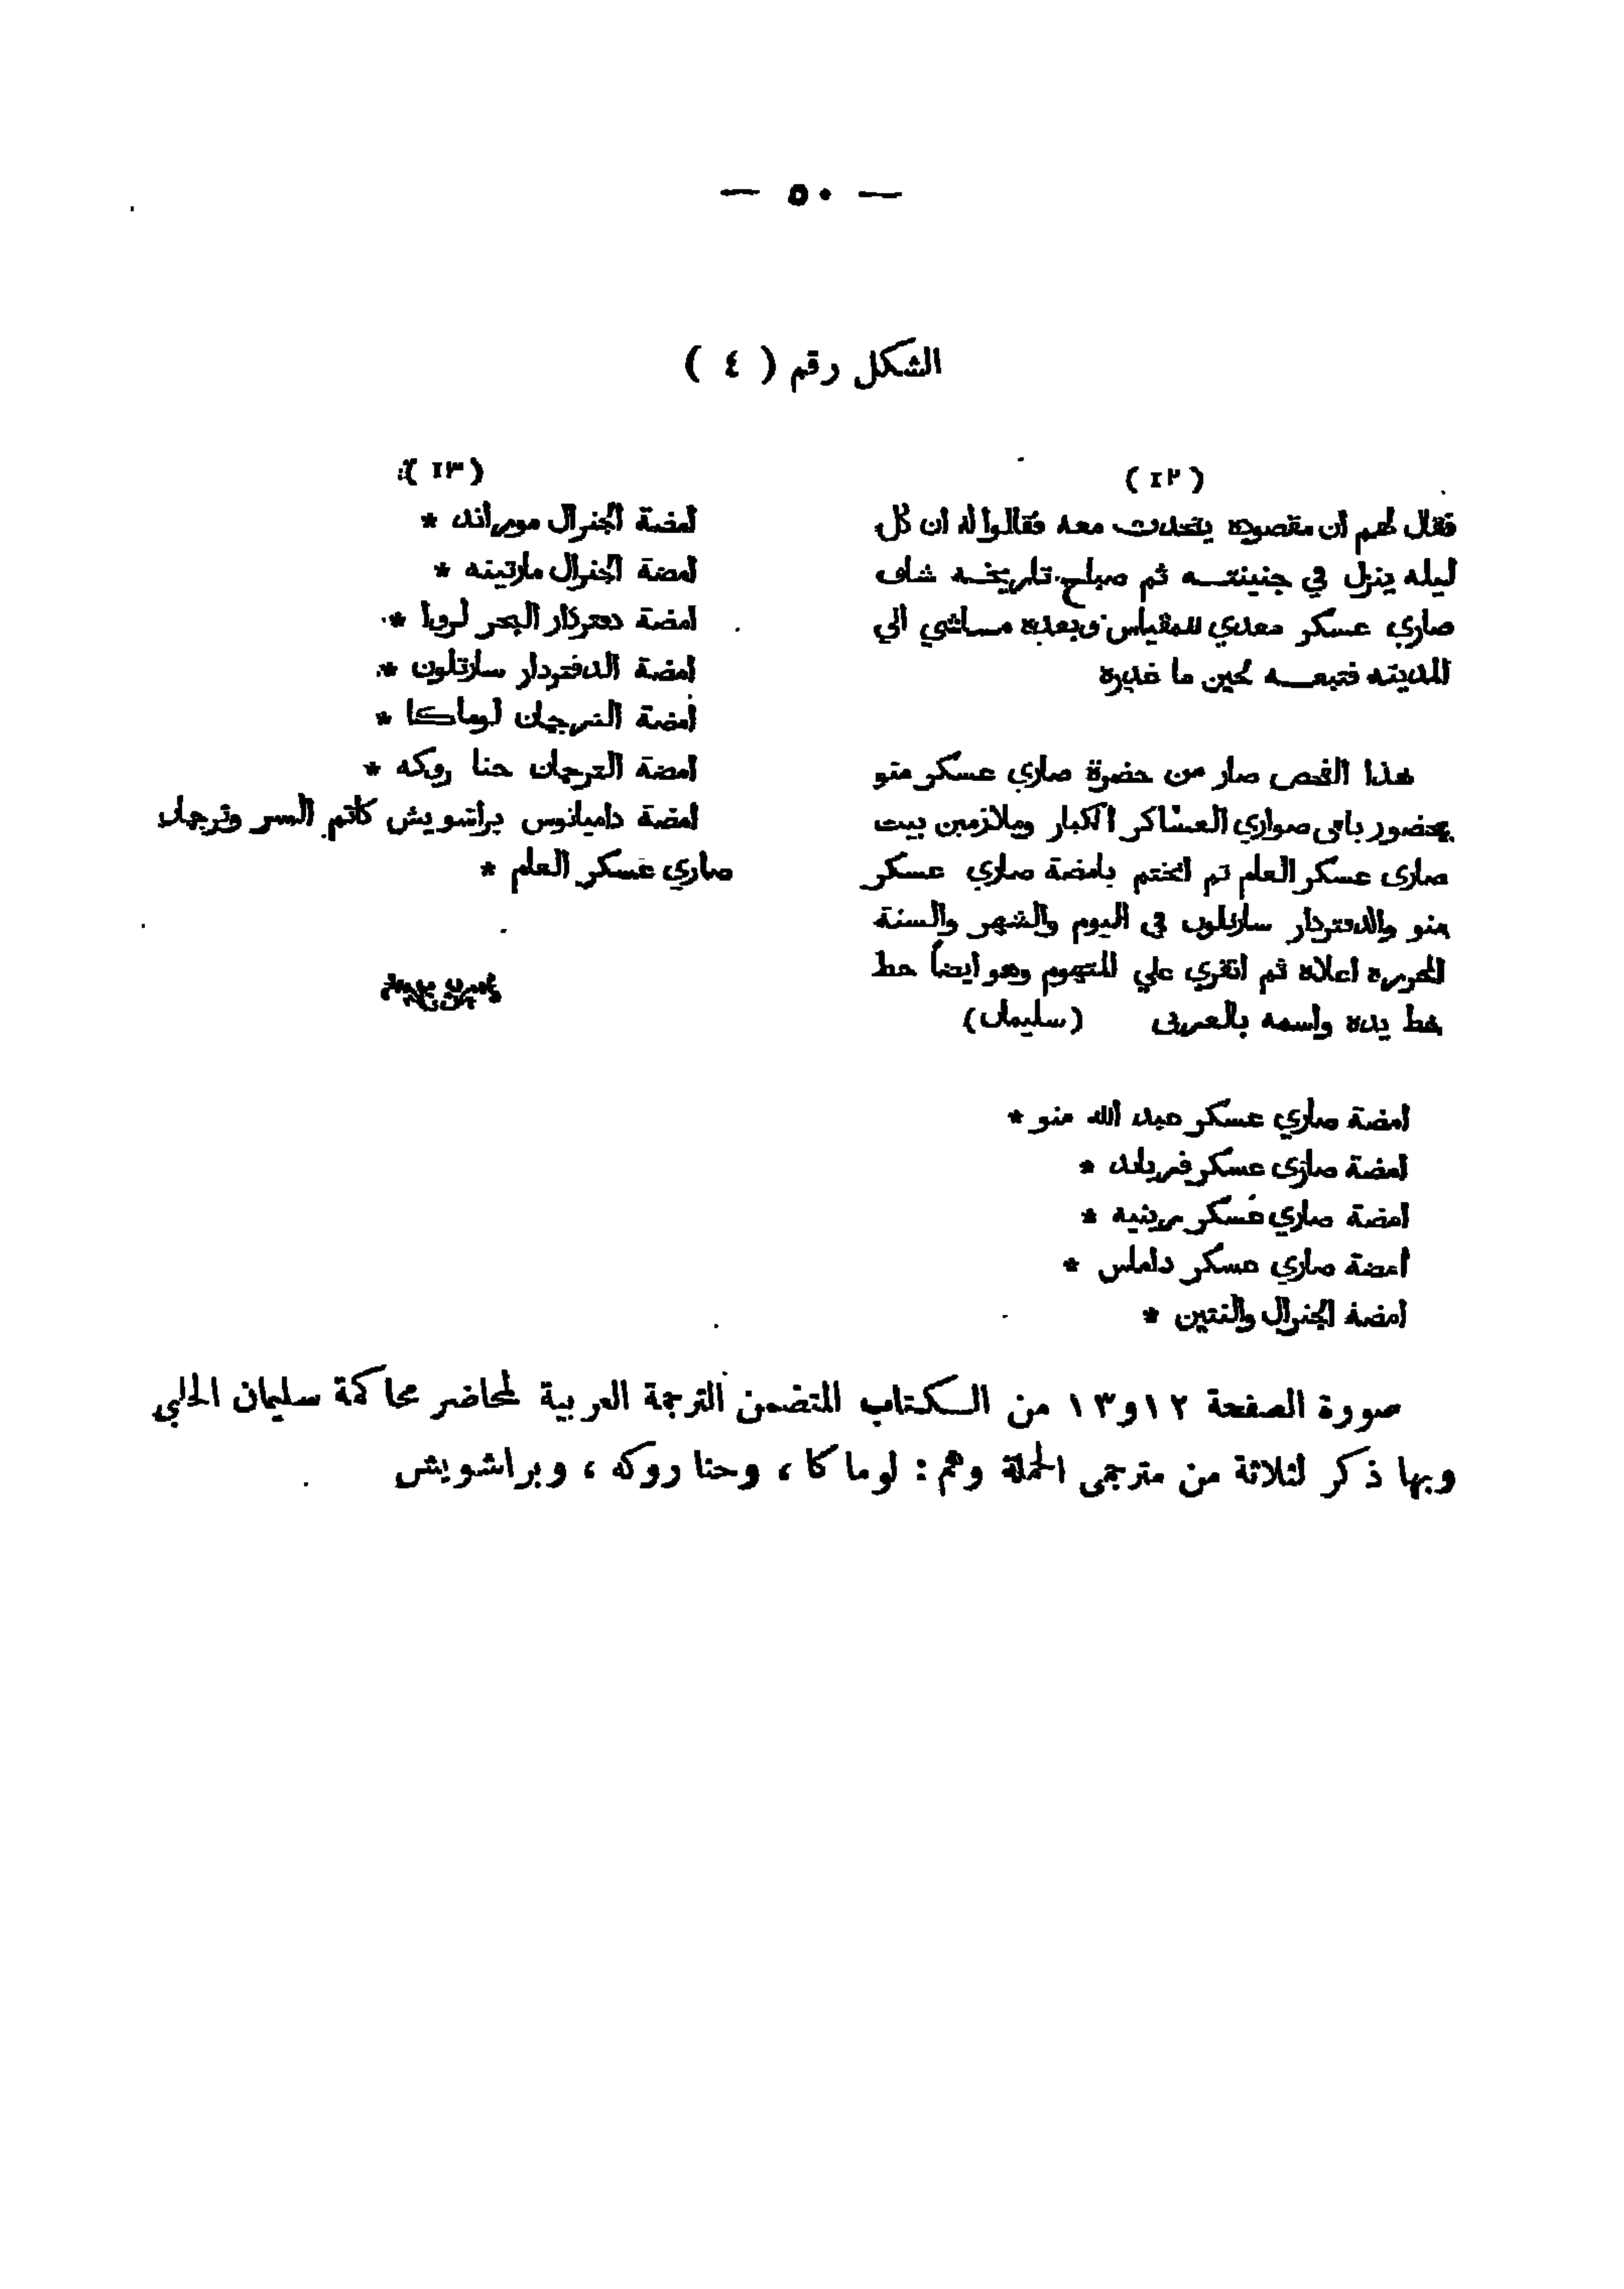 — ٥٠ —
الشكل رقم ( ٤ )
( ١٢ )
فقال لهم أن مقصوده يتحدث معه فقالوا له ان كل
ليله ينزل في جنينتـــه ثم صباح تاريخـه شاف
صاري عسكر معدي للمقياس وبعده مــاشي الي
المدينه فتبعـــه لحين ما غدره
هذا الفحص صار من حضرة صاري عسكر منو
بحضور باقى صواري العساكر الكبار وملازمين بيت
صارى عسكر العام تم انختم بامضة صاري عسكر
منو والدفتردار سارتلون في اليوم والشهر والسنة
المحرره اعلاه ثم انقري علي المتهوم وهو ايضاً حط
خط يده واسمه بالعربى (سليمان)
امضة صاري عسكر عبد الله منو *
امضة صارى عسكر فرياند *
امضة صاري عسكر رينيه *
امضة صاري عسكر داماس *
امضة الجنرال والنتين *
( ١٣ )
امضة الجنرال موراند *
امضة الجنرال مارتينه *
امضة دفتردار البحر لروا *
امضة الدفتردار سارتلون *
امضة الترجمان لوماكا *
امضة الترجمان حنا روكه *
امضة داميانوس براشويش كاتم السر وترجمان
صاري عسكر العام *
صورة الصفحة ١٢ و١٣ من الـكتاب المتضمن الترجمة العربية لمحاضر محاكمة سليمان الحلبي
وبها ذكر لثلاثة من مترجمى الحملة وهم : لوماكا ، وحنا روكه ، وبراشويش